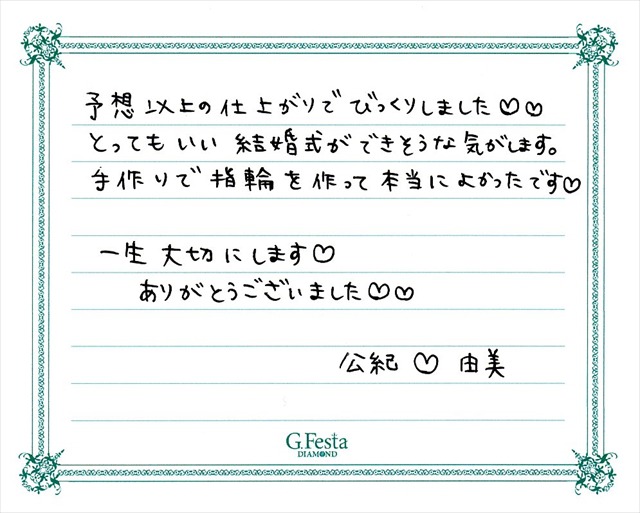 予想以上の仕上がりでびっくりしました♡♡
とってもいい結婚式ができそうな気がします。
手作りで指輪を作って本当によかったです♡
一生大切にします♡
ありがとうございました♡♡
公紀♡由美
G.Festa
DIAMOND